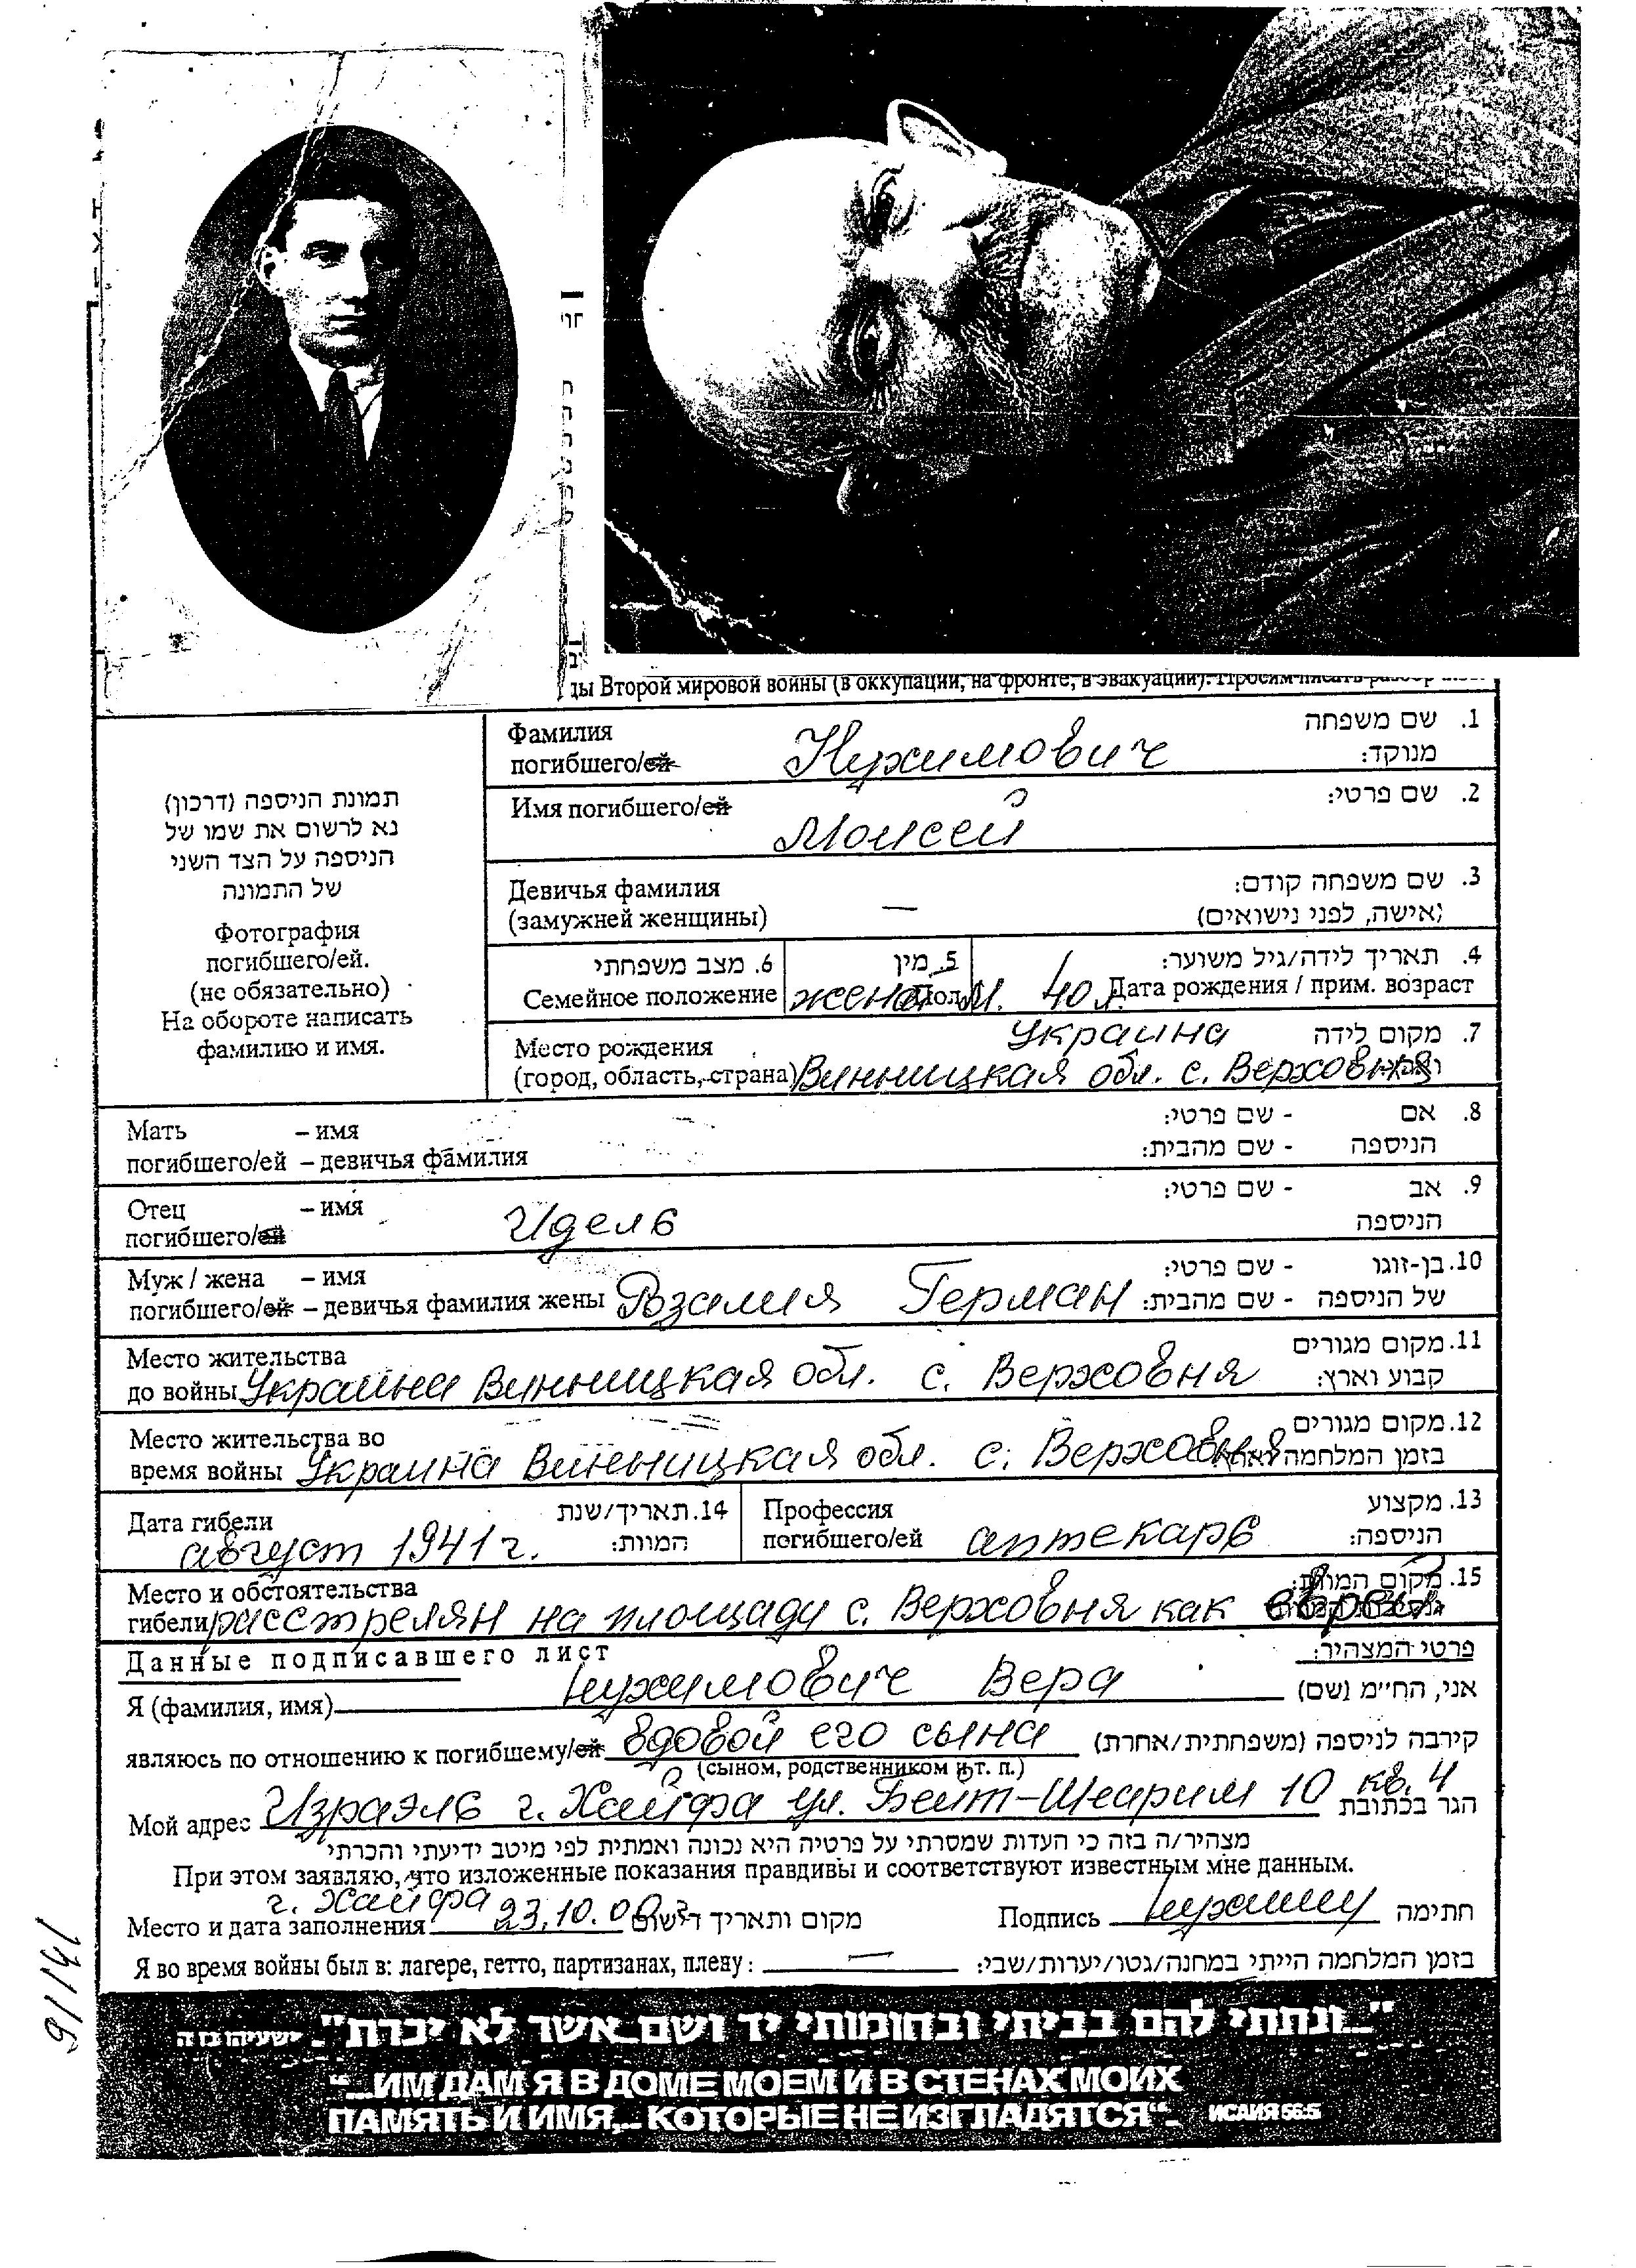 ды Второй мировой войны (в оккупации, на фронте, в эвакуации). Просим писать
Фамилия
погибшего/ей Нухимович שם משפחה .1
מנוקד:
Имя погибшего/ей Моисей שם פרטי: .2
תמונת הניספה (דרכון)
נא לרשום את שמו של
הניספה על הצד השני
של התמונה
Фотография
погибшего/ей.
(не обязательно)
На обороте написать
фамилию и имя.
Девичья фамилия — שם משפחה קודם: .3
(замужней женщины) (אישה, לפני נישואים)
6. מצב משפחתי 5. מין תאריך לידה/גיל משוער: .4
Семейное положение жена Пол М. 40 л. Дата рождения / прим. возраст
Место рождения Украина מקום לידה .7
(город, область, страна) Винницкая обл. с. Верховня
Мать – имя אם - שם פרטי: .8
погибшего/ей – девичья фамилия הניספה - שם מהבית:
Отец – имя אב - שם פרטי: .9
погибшего/ей Идель הניספה
Муж / жена – имя בן-זוגו - שם פרטי: .10
погибшего/ей – девичья фамилия жены Розалия Герман של הניספה - שם מהבית:
Место жительства מקום מגורים .11
до войны Украина Винницкая обл. с. Верховня קבוע וארץ:
Место жительства во מקום מגורים .12
время войны Украина Винницкая обл. с. Верховня בזמן המלחמה
Дата гибели 14. תאריך/שנת Профессия מקצוע .13
август 1941 г. המוות: погибшего/ей аптекарь הניספה:
Место и обстоятельства מקום המוות: .15
гибели расстрелян на площаду с. Верховня как еврей
Данные подписавшего лист פרטי המצהיר:
Я (фамилия, имя) Нухимович Вера אני, החי״מ (שם)
являюсь по отношению к погибшему/ей вдовой его сына קירבה לניספה (משפחתית/אחרת)
(сыном, родственником и т. п.)
Мой адрес Израэль г. Хайфа ул. Бейт-Шеарим 10 кв. 4 הגר בכתובת
מצהיר/ה בזה כי העדות שמסרתי על פרטיה היא נכונה ואמתית לפי מיטב ידיעתי והכרתי
При этом заявляю, что изложенные показания правдивы и соответствуют известным мне данным.
Место и дата заполнения г. Хайфа 23.10.00 מקום ותאריך Подпись חתימה
Я во время войны был в: лагере, гетто, партизанах, плену: — בזמן המלחמה הייתי במחנה/גטו/יערות/שבי:
"...ונתתי להם בביתי ובחומותי יד ושם אשר לא יכרת". ישעיהו נו ה
“...ИМ ДАМ Я В ДОМЕ МОЕМ И В СТЕНАХ МОИХ
ПАМЯТЬ И ИМЯ,.. КОТОРЫЕ НЕ ИЗГЛАДЯТСЯ“. ИСАИЯ 56:5